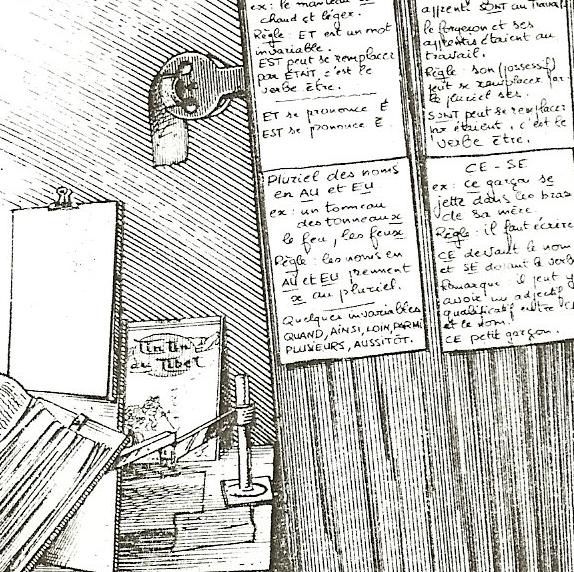 ex: le manteau est
chaud et léger.
Règle: ET est un mot
invariable.
EST peut se remplacer
par ÉTAIT, c'est le
verbe être.
ET se prononce É
EST se prononce È
Pluriel des noms
en AU et EU
ex: un tonneau
des tonneaux
le feu, les feux
Règle: les noms en
AU et EU prennent
x au pluriel.
Quelques invariables
QUAND, AINSI, LOIN, PARMI
PLUSIEURS, AUSSITÔT.
apprentis SONT au travail
le forgeron et ses
apprentis étaient au
travail.
Règle: SON (possessif)
peut se remplacer par
le pluriel ses.
SONT peut se remplacer
par étaient, c'est le
verbe être.
CE - SE
ex: ce garçon se
jette dans les bras
de sa mère.
Règle: il faut écrire
CE devant le nom
et SE devant le verbe
Remarque il peut y
avoir un adjectif
qualificatif entre CE
et le nom.
CE petit garçon.
Tintin
au Tibet